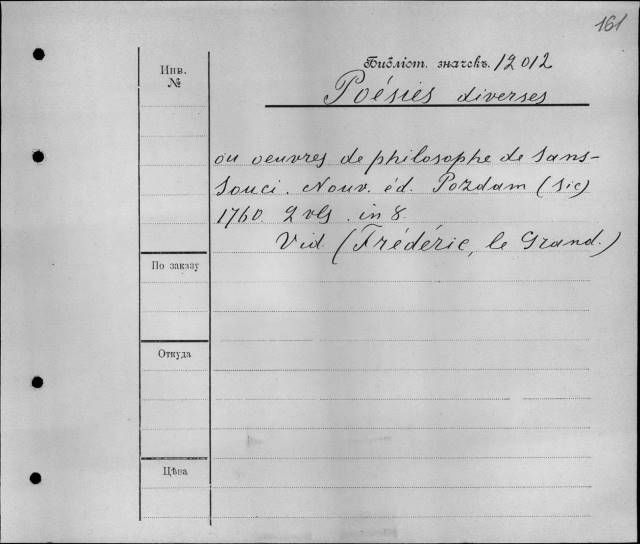 161
Инв.
№
Библіот. значекъ. 12012
Poésies diverses
ou oeuvres de philosophe de Sans-
Souci. Nouv. éd. Pozdam (sic)
1760. 2 vls. in 8
Vid (Frédéric, le Grand.)
По заказу
Откуда
Цѣна